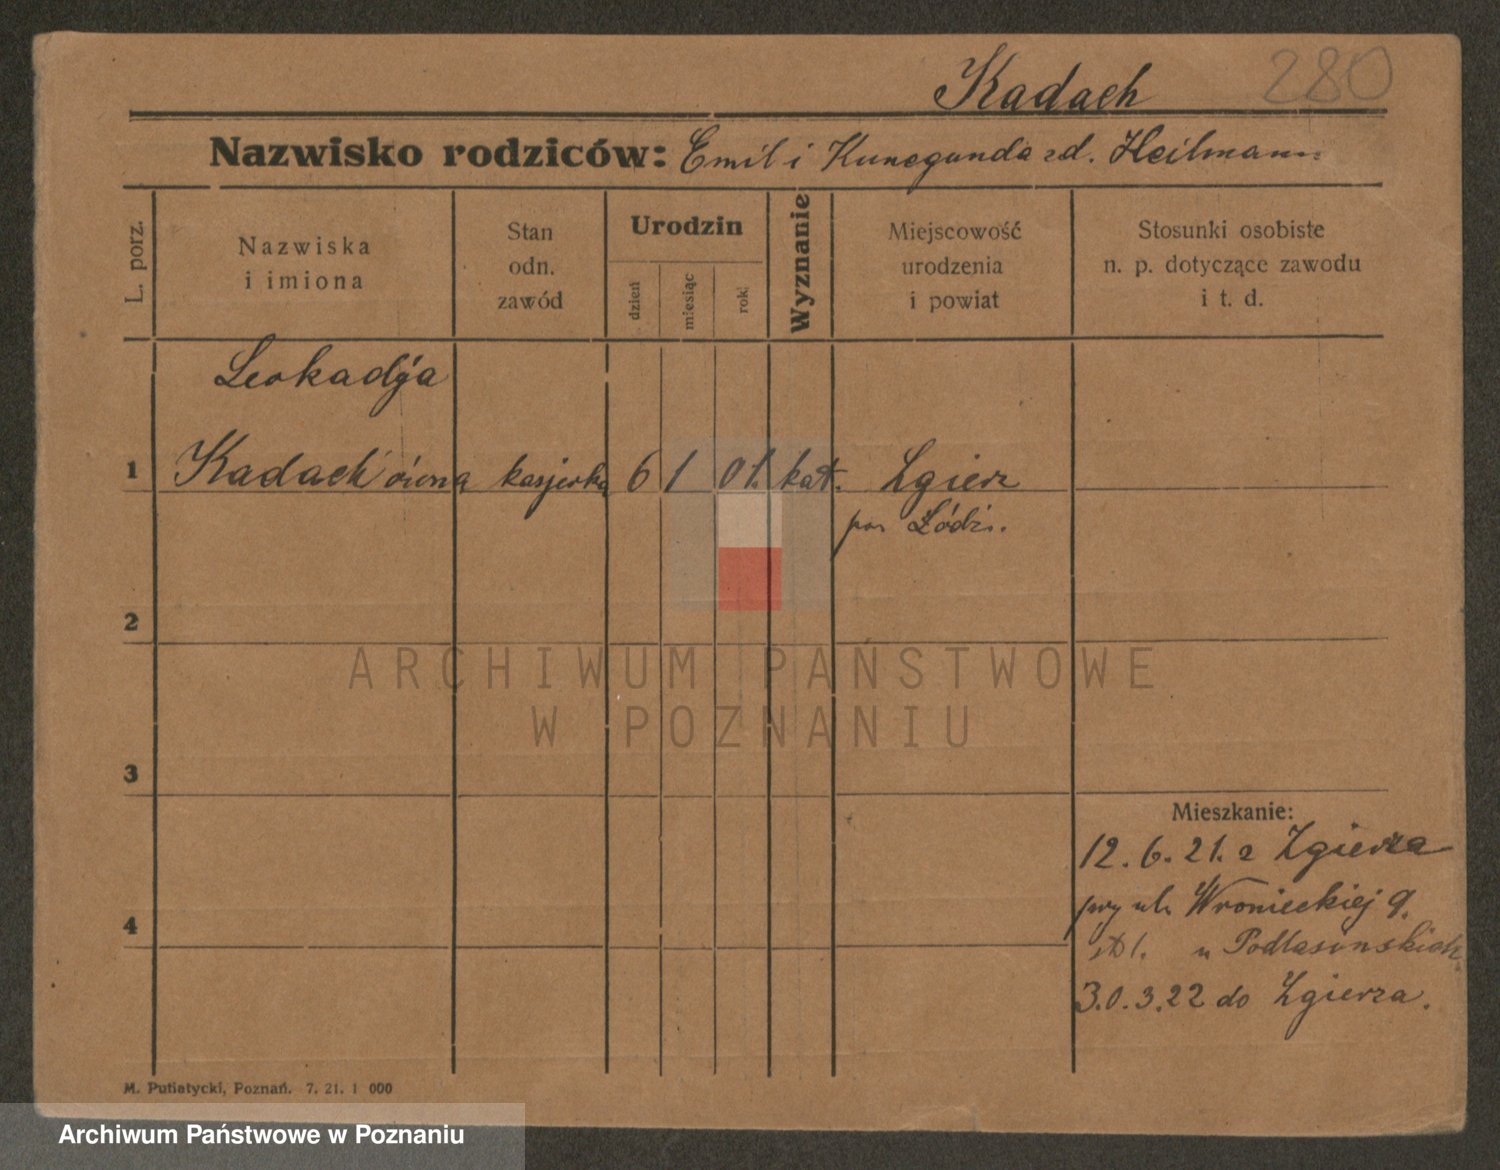 Kadach 280
Nazwisko rodziców: Emil i Kunegunda zd. Heilmann
L. porz.
Nazwiska
i imiona
Stan
odn.
zawód
Urodzin
dzień
miesiąc
rok
Wyznanie
Miejscowość
urodzenia
i powiat
Stosunki osobiste
n. p. dotyczące zawodu
i t. d.
Leokadja
1 Kadach ówna kasjerka 6 1 01. kat. Zgierz
Łódź.
2
3
4
Mieszkanie:
12.6.21. z Zgierza
przy ul. Wronieckiej 9.
u
30.3.22 do Zgierza.
M. Putiatycki, Poznań. 7. 21. 1 000
ARCHIWUM PAŃSTWOWE
W POZNANIU
Archiwum Państwowe w Poznaniu